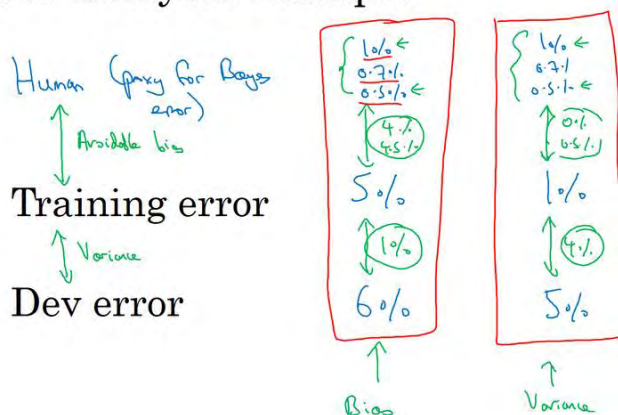 Human (proxy for Bayes error)
Avoidable bias
Training error
Variance
Dev error
1%
0.7%
0.5%
4%
4.5%
5%
1%
6%
Bias
1%
0.7%
0.5%
0%
0.5%
1%
4%
5%
Variance